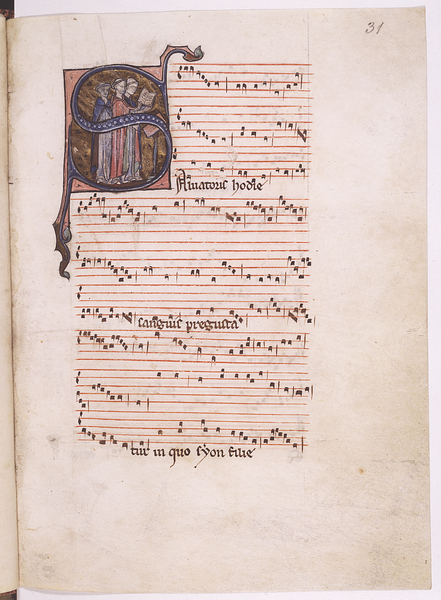 31
Salvatoris hodie
sanguis pregusta
tur in quo syon filie